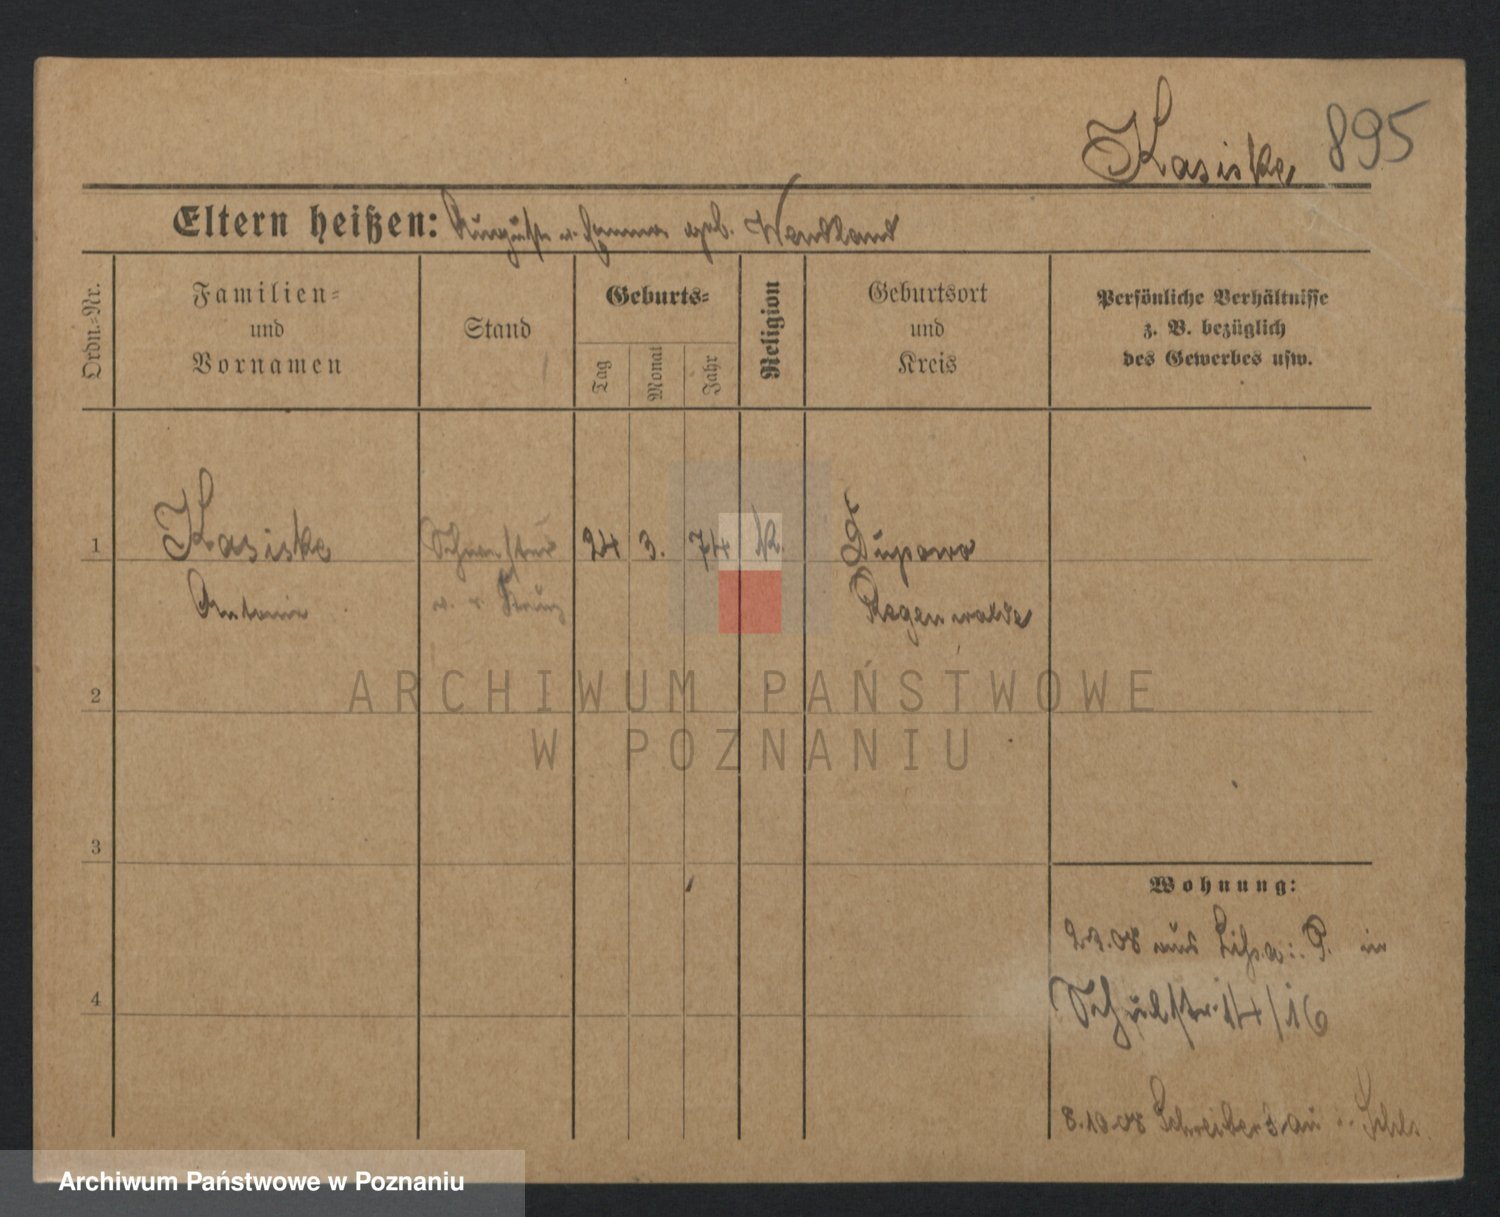 Kasiske 895
Eltern heißen: Auguste u. geb. Wendland
Ordn.-Nr.
Familien-
und
Vornamen
Stand
Geburts-
Tag
Monat
Jahr
Religion
Geburtsort
und
Kreis
Persönliche Verhältnisse
z. B. bezüglich
des Gewerbes usw.
1
Kasiske
Schwester
24 3. 74 k.
Antonie
Regenwalde
2
3
4
Wohnung:
08 aus Lissa i. P. in
Schulstr. 14/16
8.10 08 Schreiberhau i. Schls.
ARCHIWUM PAŃSTWOWE
W POZNANIU
Archiwum Państwowe w Poznaniu